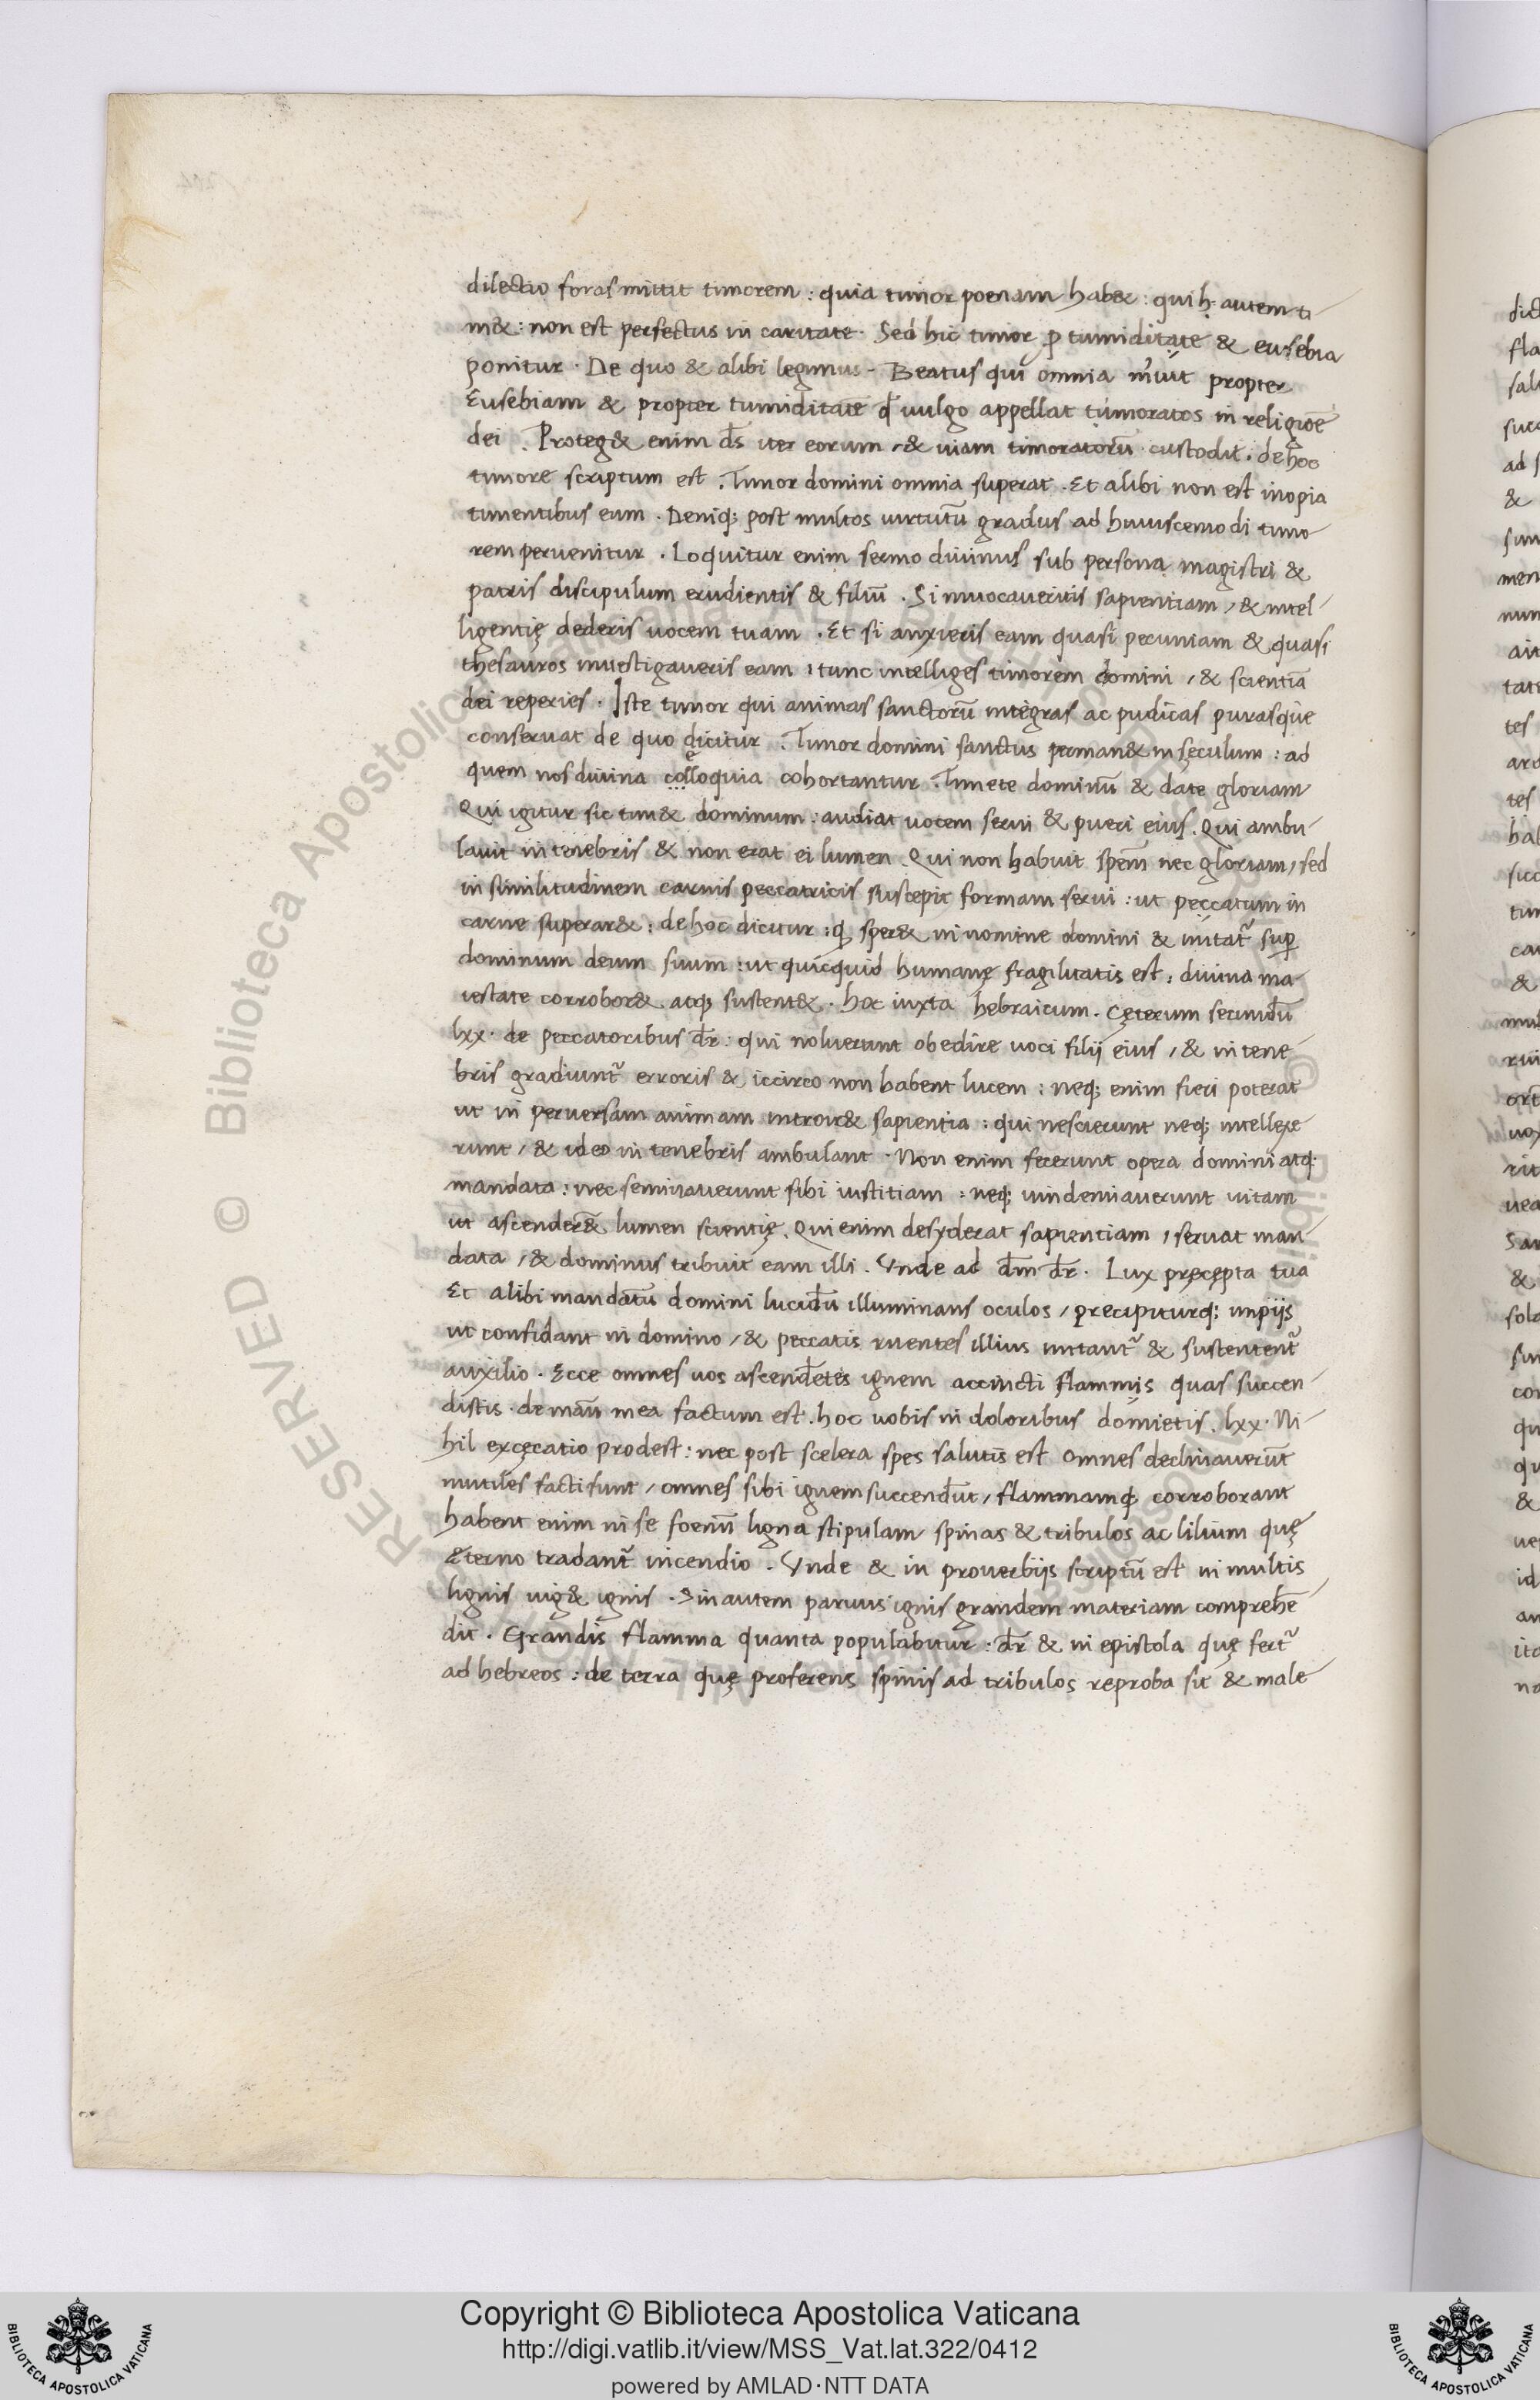 dilectio foras mittit timorem : quia timor poenam hab& : qui h. autem ti
m& : non est perfectus in caritate . Sed hic timor p timiditate & eusebia
ponitur . De quo & alibi legimus - Beatus qui omnia propter
Eusebiam & propter timiditatē qd̄ uulgo appellat timoratos in religiōe
dei . Proteg& enim d̄s iter eorum , & uiam timoratorū custodit . de hoc
timore scriptum est . Timor domini omnia superat . Et alibi non est inopia
timentibus eum . Deniq; post multos uirtutū gradus ad huiuscemodi timo
rem peruenitur . Loquitur enim sermo diuinus sub persona magistri &
patris discipulum erudientis & filiū . Si inuocaueritis sapientiam , & intel
ligentię dederis uocem tuam . Et si anxieris eam quasi pecuniam & quasi
thesauros inuestigaueris eam , tunc intelliges timorem domini , & scientiā
dei reperies . Iste timor qui animas sanctorū integras ac pudicas purasque
conseruat de quo dicitur . Timor domini sanctus perman& in sęculum : ad
quem nos diuina colloquia cohortantur . Timete dominū & date gloriam
Qui igitur sic tim& dominum : audiat uocem serui & pueri eius . Qui ambu
lauit in tenebris & non erat ei lumen . Qui non habuit spem nec gloriam , sed
in similitudinem carnis peccatricis suscepit formam serui : ut peccatum in
carne superar& : de hoc dicitur : q sper& in nomine domini & initat᷑ sup
dominum deum suum : ut quicquid humanę fragilitatis est : diuina ma
iestate corrobor& . atq; sustent& . hoc iuxta hebraicum . Cęterum secundū
lxx . de peccatoribus dr̄ : qui noluerunt obedire uoci filij eius , & in tene
bris gradiunt᷑ erroris & iccirco non habent lucem : neq; enim fieri poterat
ut in peruersam animam introir& sapientia : qui nescierunt neq; intellexe
runt , & ideo in tenebris ambulant . Non enim fecerunt opera domini atq:
mandata : nec seminauerunt sibi iustitiam : neq; uindemiauerunt uitam
ut ascender& lumen scientię . Qui enim desyderat sapientiam , seruat man
data , & dominus tribuit eam illi . Vnde ad dm̄ dr̄ . Lux pręcepta tua
Et alibi mandatū domini lucidū illuminans oculos , precipiturq; impijs
ut confidant in domino , & peccatis ruentes illius initant᷑ & sustentent᷑
auxilio . Ecce omnes uos ascendētes ignem accincti flammis quas succen
distis . de manū mea factum est . hoc uobis in doloribus domietis . lxx . Ni
hil excęcatio prodest : nec post scelera spes salutis est Omnes declinauerūt
inutiles facti sunt , omnes sibi ignem succendūt , flammamq corroborant
habent enim in se foenū ligna stipulam spinas & tribulos ac lilium quę
ęterno tradant᷑ incendio . Vnde & in prouerbijs scriptū est in multis
lignis uig& ignis . Sin autem paruus ignis grandem materiam comprehē
dit . Grandis flamma quanta populabitur : dr̄ & in epistola quę fert᷑
ad hebreos : de terra quę proferens spinis ad tribulos reproba sit & male
RESERVED © Biblioteca Apostolica Vaticana
Copyright © Biblioteca Apostolica Vaticana
http://digi.vatlib.it/view/MSS_Vat.lat.322/0412
powered by AMLAD·NTT DATA
BIBLIOTECA APOSTOLICA VATICANA
BIBLIOTECA APOSTOLICA VATICANA